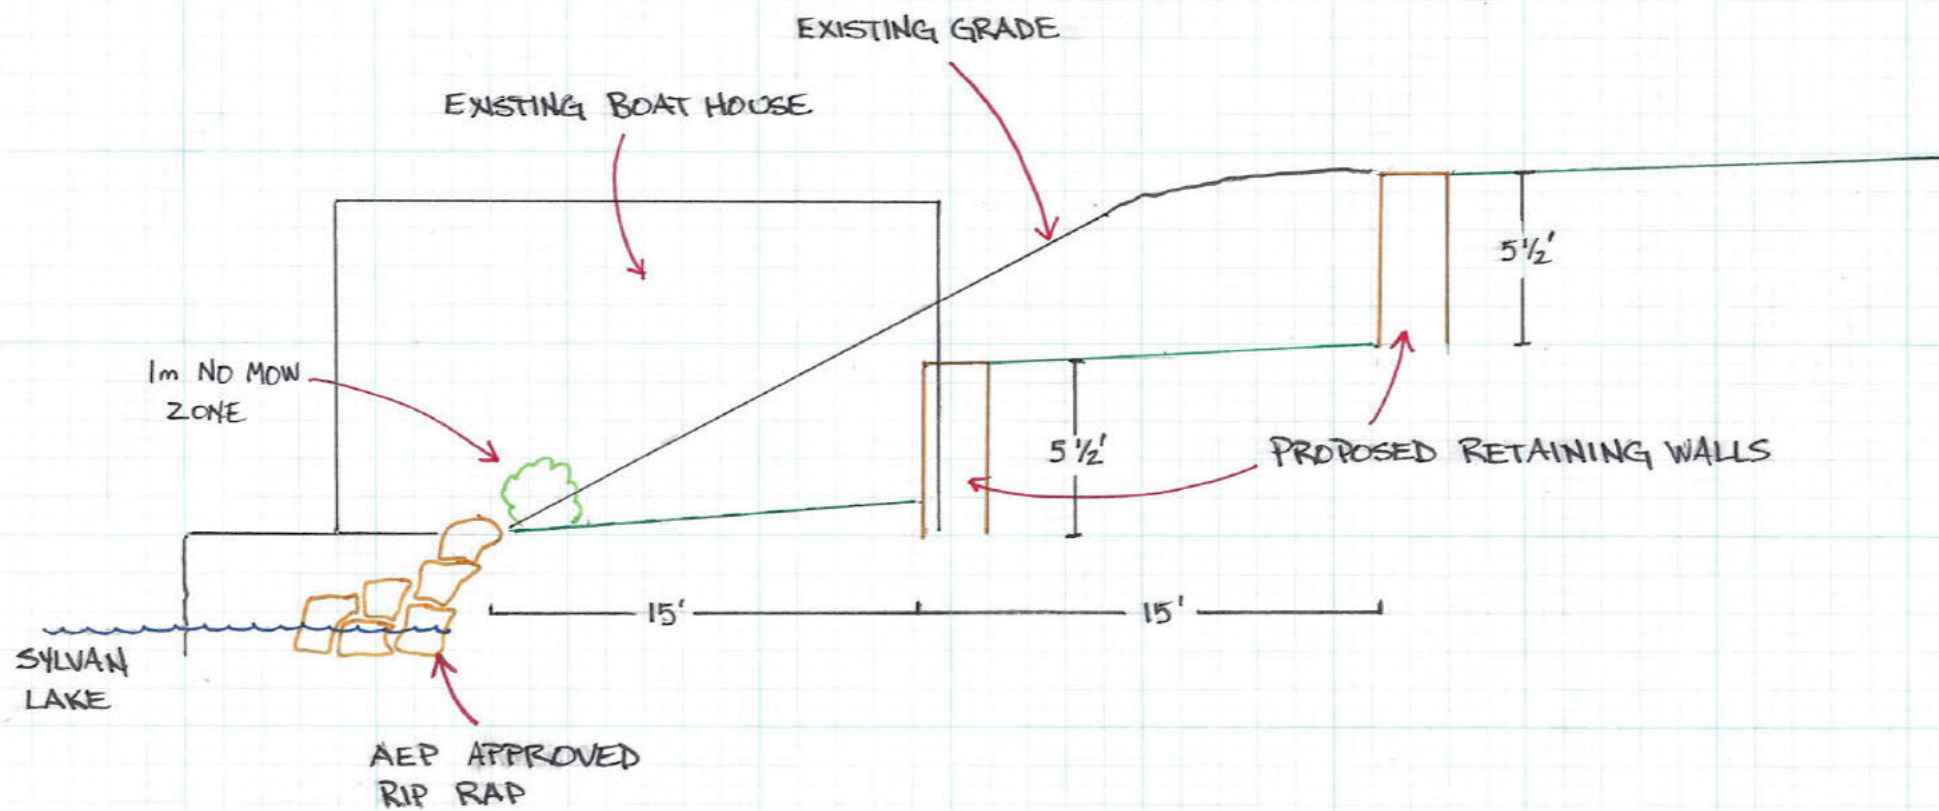 EXISTING GRADE
EXISTING BOAT HOUSE
5½'
1m NO MOW
ZONE
5½'
PROPOSED RETAINING WALLS
15'
15'
SYLVAN
LAKE
AEP APPROVED
RIP RAP